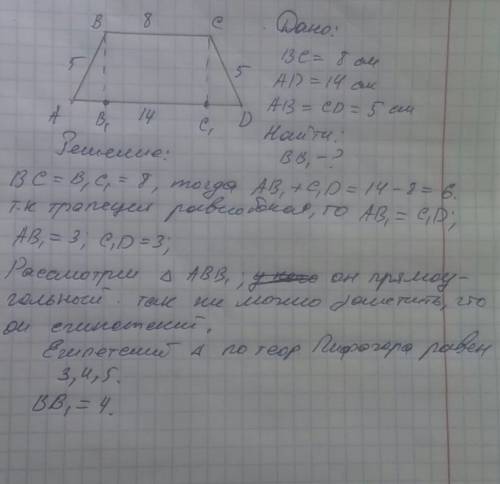 B 8 C
5 5
A B₁ 14 C₁ D
Дано:
BC = 8 см
AD = 14 см
AB = CD = 5 см
Найти:
BB₁ - ?
Решение:
BC = B₁C₁ = 8, тогда AB₁ + C₁D = 14 - 8 = 6.
т.к трапеция равнобокая, то AB₁ = C₁D;
AB₁ = 3; C₁D = 3;
Расмотрим Δ ABB₁; он прямоу-
гольный. так же можно заметить, что
он египетский.
Египетский Δ по теор Пифагора равен
3,4,5.
BB₁ = 4.